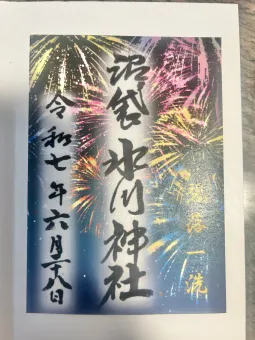 一洗
沼袋氷川神社
令和七年六月二十八日